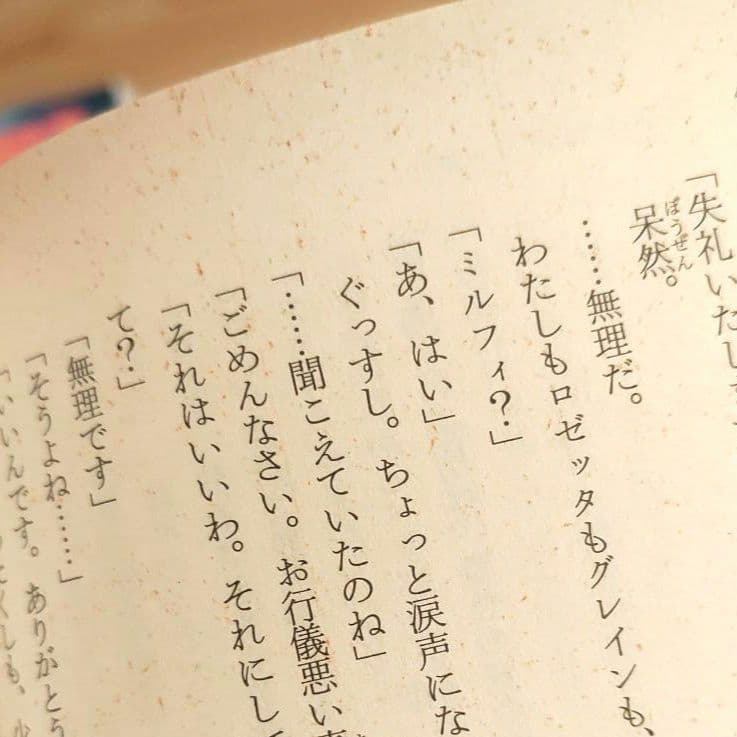 「失礼いたしま
呆然。
ぼうぜん
……無理だ。
わたしもロゼッタもグレインも、
「ミルフィ?」
「あ、はい」
ぐっすし。ちょっと涙声にな
「……聞こえていたのね」
「ごめんなさい。お行儀悪い
「それはいいわ。それにして
て?」
「無理です」
「そうよね……」
「いいんです。ありがとう